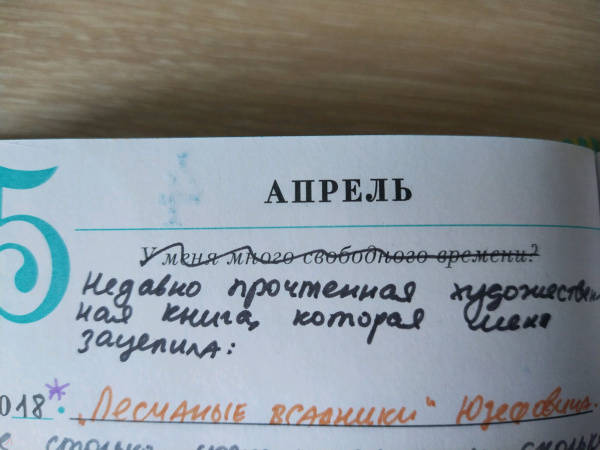 5
АПРЕЛЬ
У меня много свободного времени?
Недавно прочтенная художествен
ная книга, которая меня
зацепила:
2018 * „Песчаные всадники“ Юзефовича.
столько